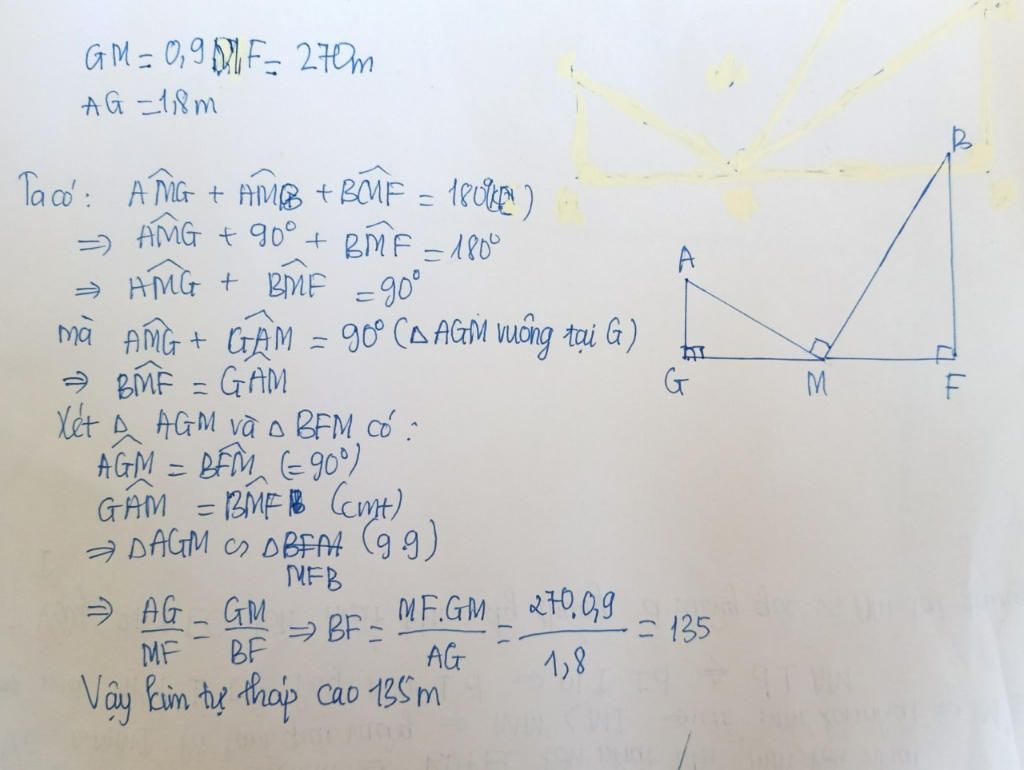 GM = 0,9 MF = 270m
AG = 1,8m
Ta có: AMG + AMB + BMF = 180°
⇒ AMG + 90° + BMF = 180°
⇒ AMG + BMF = 90°
mà AMG + GAM = 90° (△ AGM vuông tại G)
⇒ BMF = GAM
Xét △ AGM và △ BFM có:
AGM = BFM (= 90°)
GAM = BMF (cmt)
⇒ △AGM ∽ △BFM (g.g)
MFB
⇒ AG/MF = GM/BF ⇒ BF = MF.GM/AG = 270.0,9/1,8 = 135
Vậy kim tự tháp cao 135m
B
A
G M F